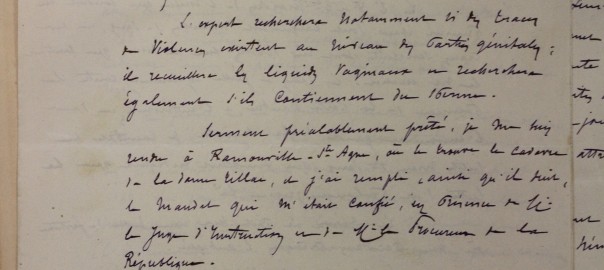 L'expert recherchera notamment si des traces
de violences existent au niveau des parties génitales ;
il recueillera les liquides vaginaux et recherchera
également s'ils contiennent du sperme.
Serment préalablement prêté, je me suis
rendu à Ramonville-St Agne, où se trouve le cadavre
de la dame Tillac, et j'ai rempli, ainsi qu'il suit,
le mandat qui m'était confié, en présence de Mr
le Juge d'Instruction et de Mr le Procureur de la
République.